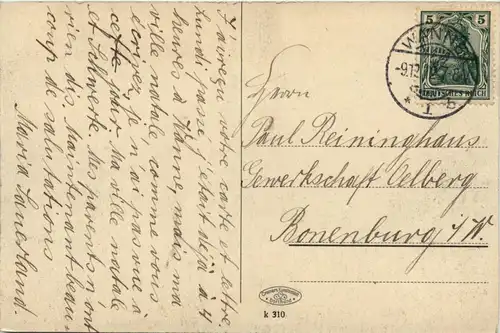 J'ai reçu votre carte et lettre.
Lundi passé j'étant dejà à 4
heures à Wanne, mais ma
ville natale, comme vous
écrivez, je n'ai pas vue à
cette jour. Ma ville natale
est Schwerte. Mes parents n'ont
rien dis. Maintenant beau-
coup de salutations
Maria Sauerland.
5 5
WANNE
-9.12.
DEUTSCHES REICH
* 1 b
Herrn
Paul Reininghaus
Gewerkschaft Oelberg
Bonenburg i/W.
k 310